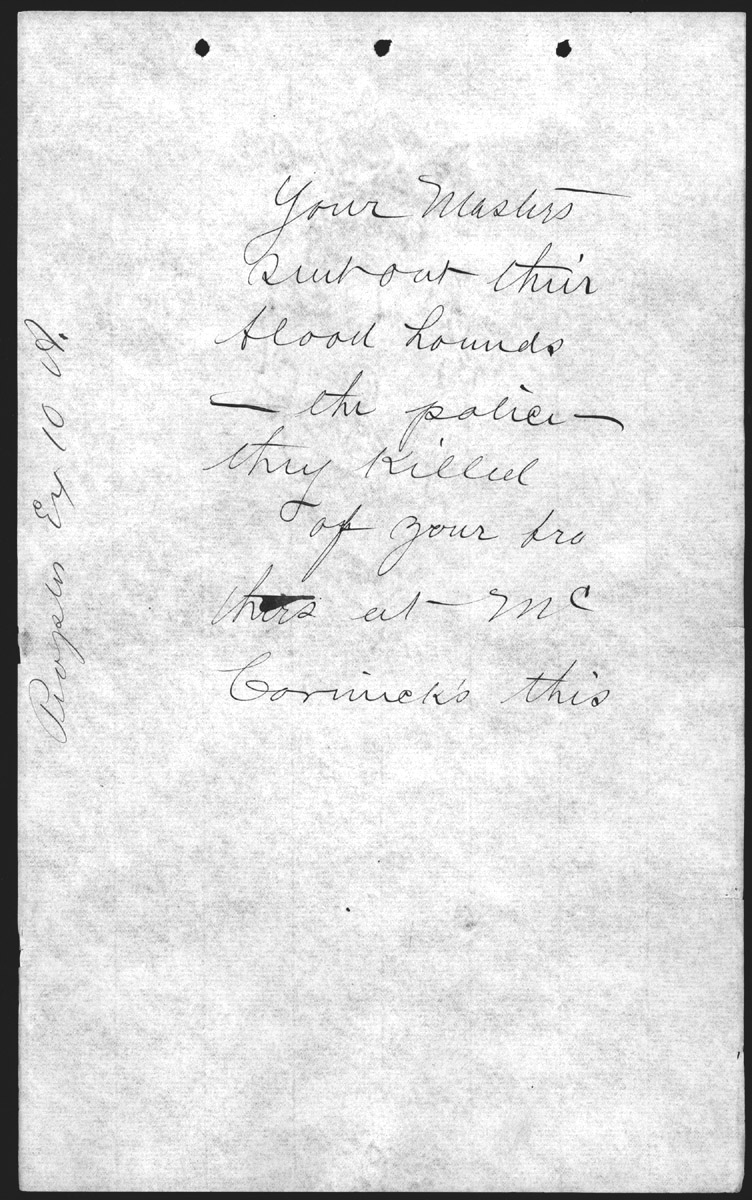 Your Masters
sent out their
blood hounds
— the police —
they killed
6 of your bro
thers at Mc
Cormick's this
Peoples Ex 10 A.